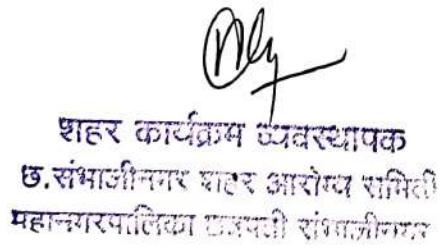 शहर कार्यक्रम व्यवस्थापक
छ.संभाजीनगर शहर आरोग्य समिती
महानगरपालिका छत्रपती संभाजीनगर